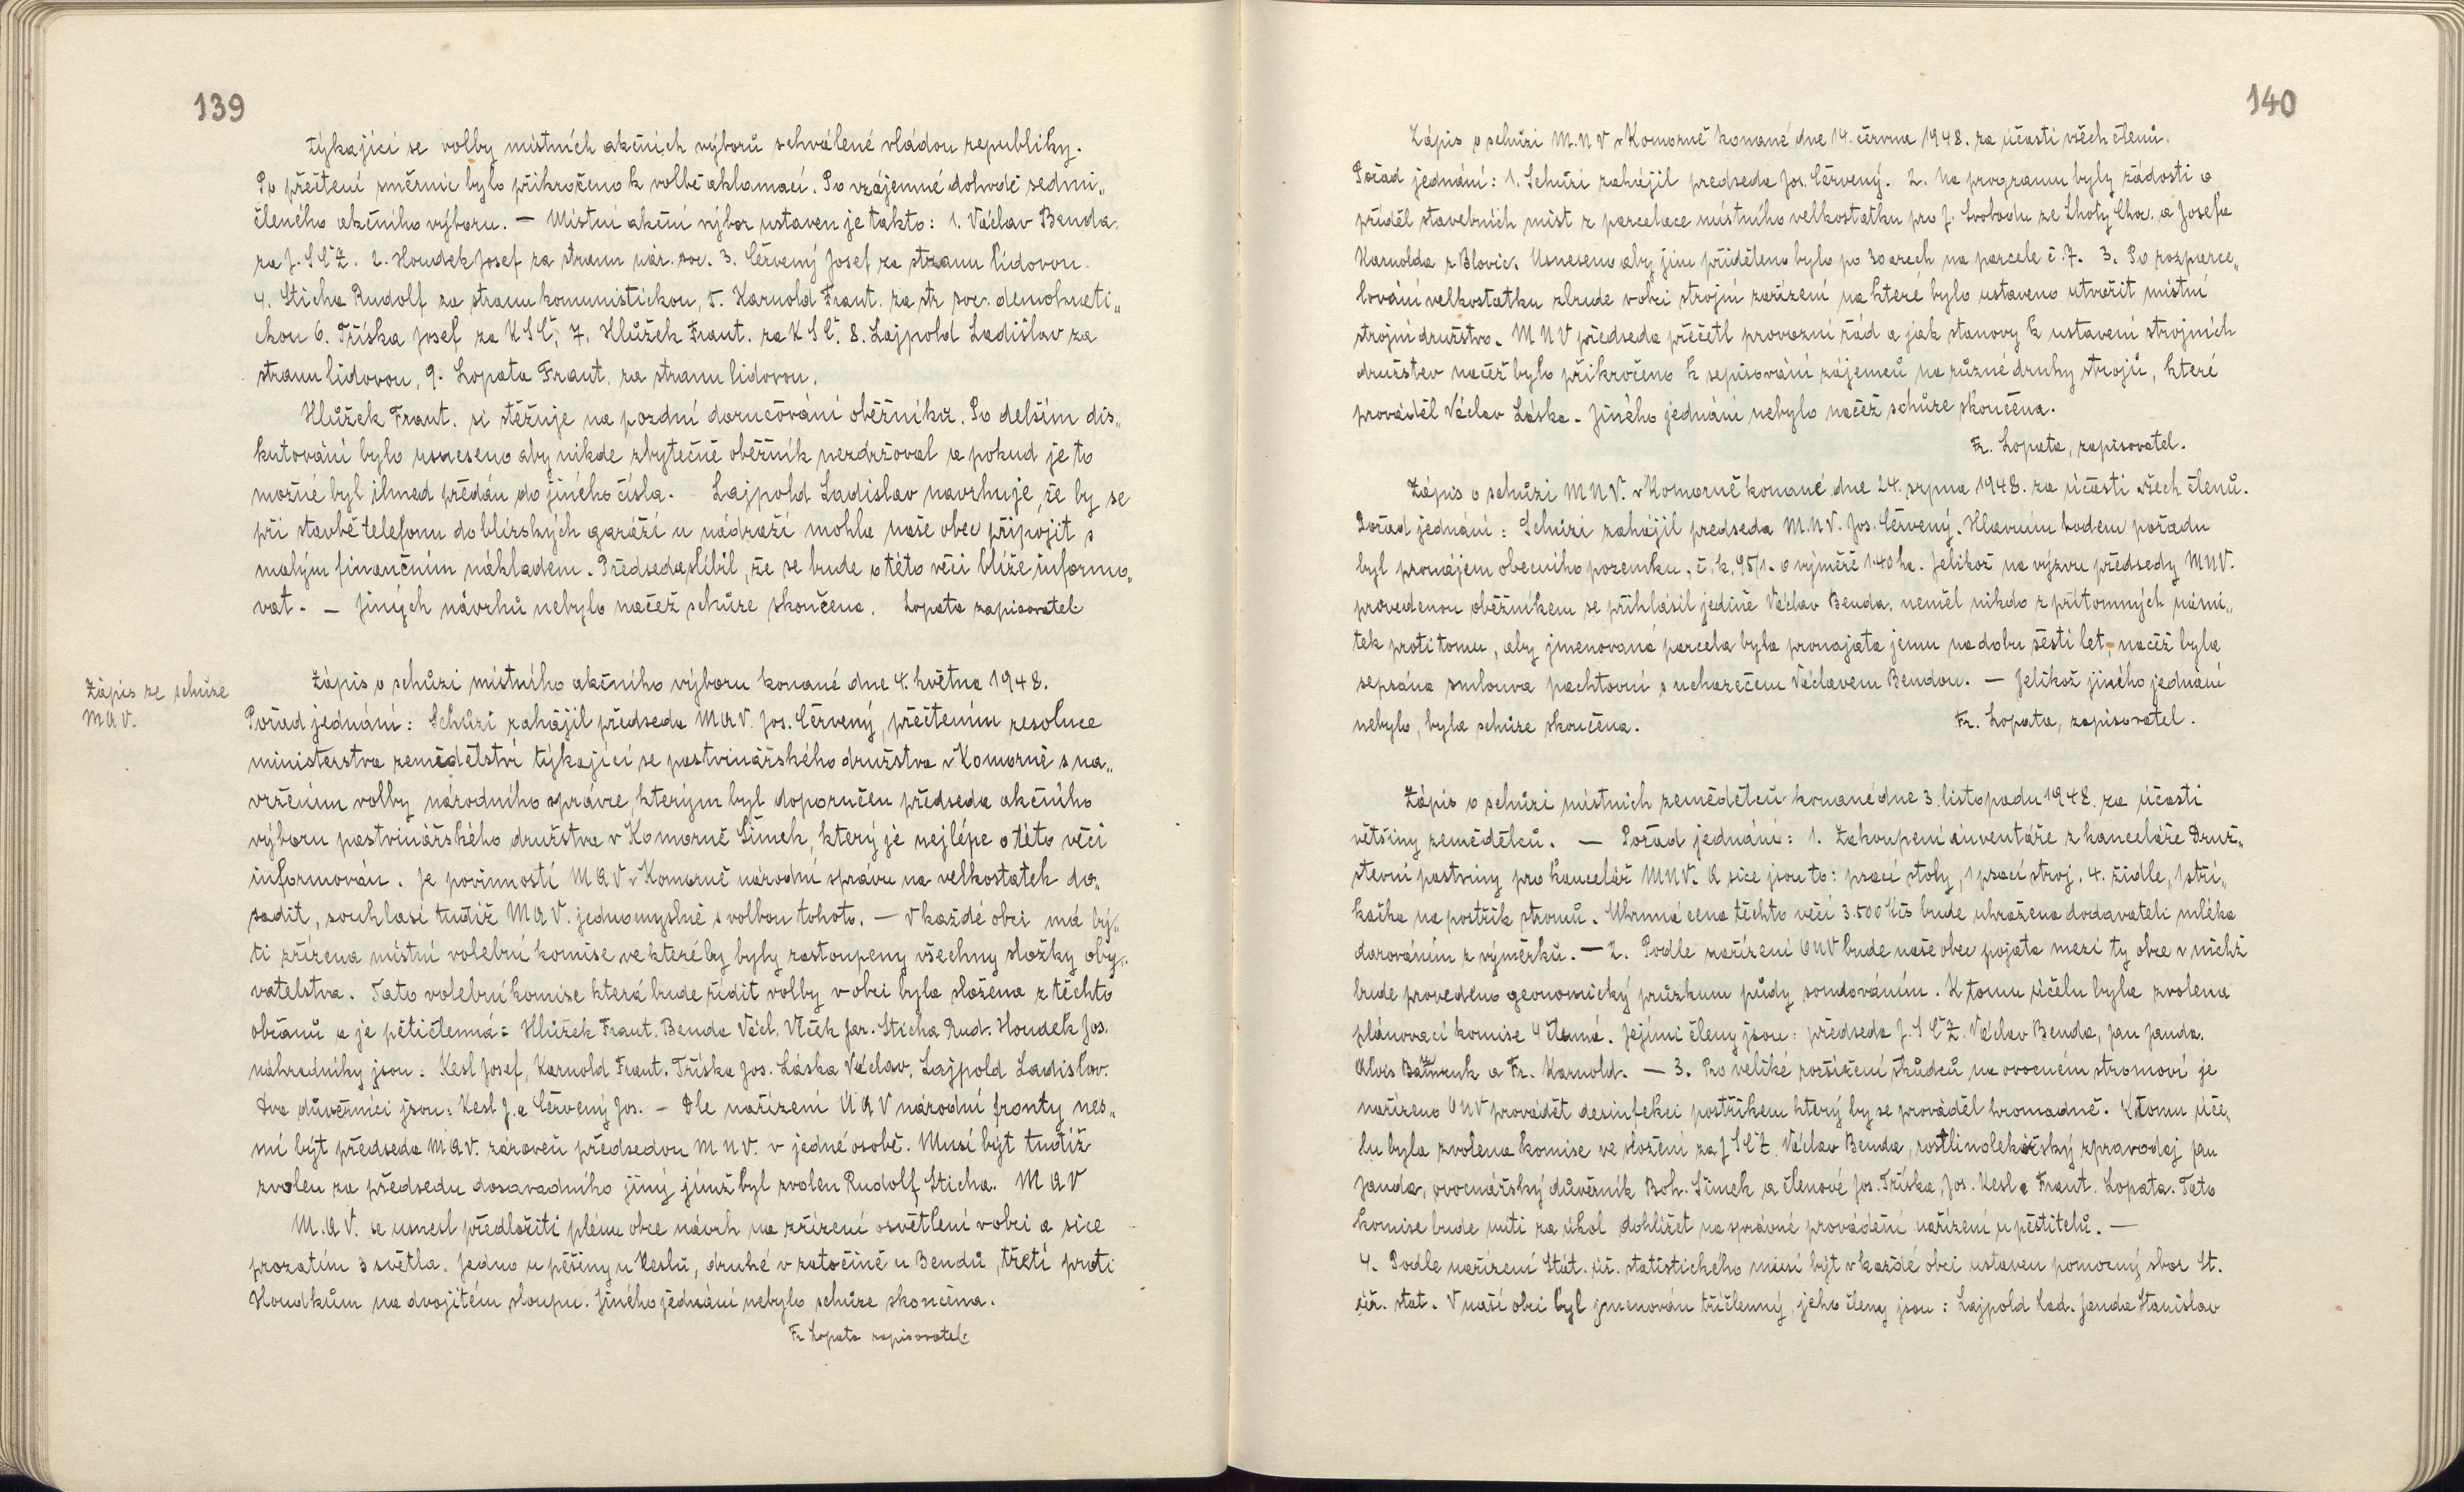 139
týkající se volby místních akčních výborů schválené vládou republiky.
Po přečtení směrnic bylo přikročeno k volbě aklamací. Po vzájemné dohodě sedmi„
členého akčního výboru. — Místní akční výbor ustaven je takto: 1. Václav Benda.
za J.S.Č.Z. 2. Houdek Josef za stranu nár. soc. 3. Červený Josef za stranu lidovou.
4. Sticha Rudolf za stranu komunistickou, 5. Karnold Frant. za str soc. demokrati„
ckou 6. Tříska Josef za KSČ, 7. Hlůžek Frant. za KSČ. 8. Lajpold Ladislav za
stranu lidovou, 9. Lopata Frant. za stranu lidovou.
Hlůžek Frant. si stěžuje na pozdní doručování oběžníků. Po delším dis„
kutování bylo usneseno aby nikde zbytečně oběžník nezdržoval a pokud je to
možné byl ihned předán do jiného čísla. Lajpold Ladislav navrhuje, že by se
při stavbě telefonu do blízských garáží u nádraží mohla naše obec připojit s
malým finančním nákladem. Předseda slíbil, že se bude o této věci blíže informo„
vat. — Jiných návrhů nebylo načež schůze skončena. Lopata zapisovatel
Zápis ze schůze
MAV.
Zápis o schůzi místního akčního výboru konané dne 4. května 1948.
Pořad jednání: Schůzi zahájil předseda MAV. Jos. Červený, přečtením resoluce
ministerstva zemědělství týkající se pastvinářského družstva v Komorně s na„
vržením volby národního správce, kterým byl doporučen předseda akčního
výboru pastvinářského družstva v Komorně Šimek, který je nejlépe o této věci
informován. Je povinností MAV v Komorně národní správu na velkostatek do„
sadit, souhlasí tudíž MAV. jednomyslně s volbou tohoto. — V každé obci má bý„
ti zřízena místní volební komise ve které by byly zastoupeny všechny složky oby„
vatelstva. Tato volební komise která bude řídit volby v obci byla složena z těchto
občanů a je pětičlenná: Hlůžek Frant. Benda Václ. Vlček Jar. Sticha Rud. Houdek Jos.
náhradníky jsou: Kesl Josef, Karnold Frant. Tříska Jos. Láska Václav, Lajpold Ladislav.
Dva důvěrníci jsou: Kesl J. a Červený Jos. — Dle nařízení ÚAV národní fronty nes„
mí být předseda MAV. zároveň předsedou MNV. v jedné osobě. Musí být tudíž
zvolen za předsedu dosavadního jiný jímž byl zvolen Rudolf Sticha. MAV
M.AV. se usnesl předložiti plénu obce návrh na zřízení osvětlení v obci a sice
prozatím 3 světla. Jedno u pěšiny u Keslů, druhé v zatočině u Bendů, třetí proti
Houdkům na dvojitém sloupu. Jiného jednání nebylo schůze skončena.
Fr Lopata zapisovatel.
140
Zápis o schůzi M.NV v Komorně konané dne 14. června 1948. za účasti všech členů.
Pořad jednání: 1. Schůzi zahájil predseda Jos. Červený. 2. Na programu byly žádosti o
příděl stavebních míst z parcelace místního velkostatku pro J. Svobodu ze Lhoty Choc. a Josefa
Karnolda z Blovic. Usneseno aby jim přiděleno bylo po 30 arech na parcele č 7. 3. Po rozparce„
lování velkostatku zbude v obci strojní zařízení na které bylo ustaveno utvořit místní
strojní družstvo. MNV předseda přečetl provozní řád a jak stanovy k ustavení strojních
družstev načež bylo přikročeno k sepisování zájemců na různé druhy strojů, které
prováděl Václav Láska. Jiného jednání nebylo načež schůze skončena.
Fr. Lopata, zapisovatel.
Zápis o schůzi MNV. v Komorně konané dne 24. srpna 1948. za účasti všech členů.
Pořad jednání: Schůzi zahájil predseda M.NV. Jos. Červený. Hlavním bodem pořadu
byl pronájem obecního pozemku, č. k. 95/1. o výměře 1·40 ha. Jelikož na výzvu předsedy MNV.
provedenou oběžníkem se přihlásil jedině Václav Benda, neměl nikdo z přítomných námi„
tek proti tomu, aby jmenovaná parcela byla pronajata jemu na dobu šesti let, načež byla
sepsána smlouva pachtovní s uchazečem Václavem Bendou. — Jelikož jiného jednání
nebylo, byla schůze skončena. Fr. Lopata, zapisovatel.
Zápis o schůzi místních zemědělců konané dne 3. listopadu 1948. za účasti
většiny zemědělců. — Pořad jednání: 1. Zakoupení inventáře z kanceláře Druž„
stevní pastviny pro kancelář MNV. a sice jsou to: psací stoly, 1 psací stroj. 4. židle, 1 stří„
kačka na postřik stromů. Uhrnná cena těchto věcí 3.500 Kčs bude uhražena dodavateli mléka
darováním z výměrků. — 2. Podle nařízení ONV bude naše obec pojata mezi ty obce v nichž
bude provedeno geonomický průzkum půdy sondováním. K tomu účelu byla zvolena
plánovací komise 4 členná. Jejími členy jsou: předseda J.S.Č.Z. Václav Benda, Jan Janda.
Alois a Fr. Karnold. — 3. Pro veliké rozšíření škůdců na ovocném stromoví je
nařízeno ONV provádět desinfekci postřikem který by se prováděl hromadně. K tomu úče„
lu byla zvolena komise ve složení za JSČZ. Václav Benda, rostlinolekářský zpravodaj Jan
Janda, ovocnářský důvěrník Boh. Šimek a členové Jos. Tříska, Jos. Kesl a Frant. Lopata. Tato
komise bude míti za úkol dohlížet na správné provádění nařízení u pěstitelů. —
4. Podle nařízení Stát. úř. statistického musí být v každé obci ustaven pomocný sbor St.
úř. stat. V naší obci byl jmenován tříčlenný, jeho členy jsou: Lajpold Lad. Janda Stanislav